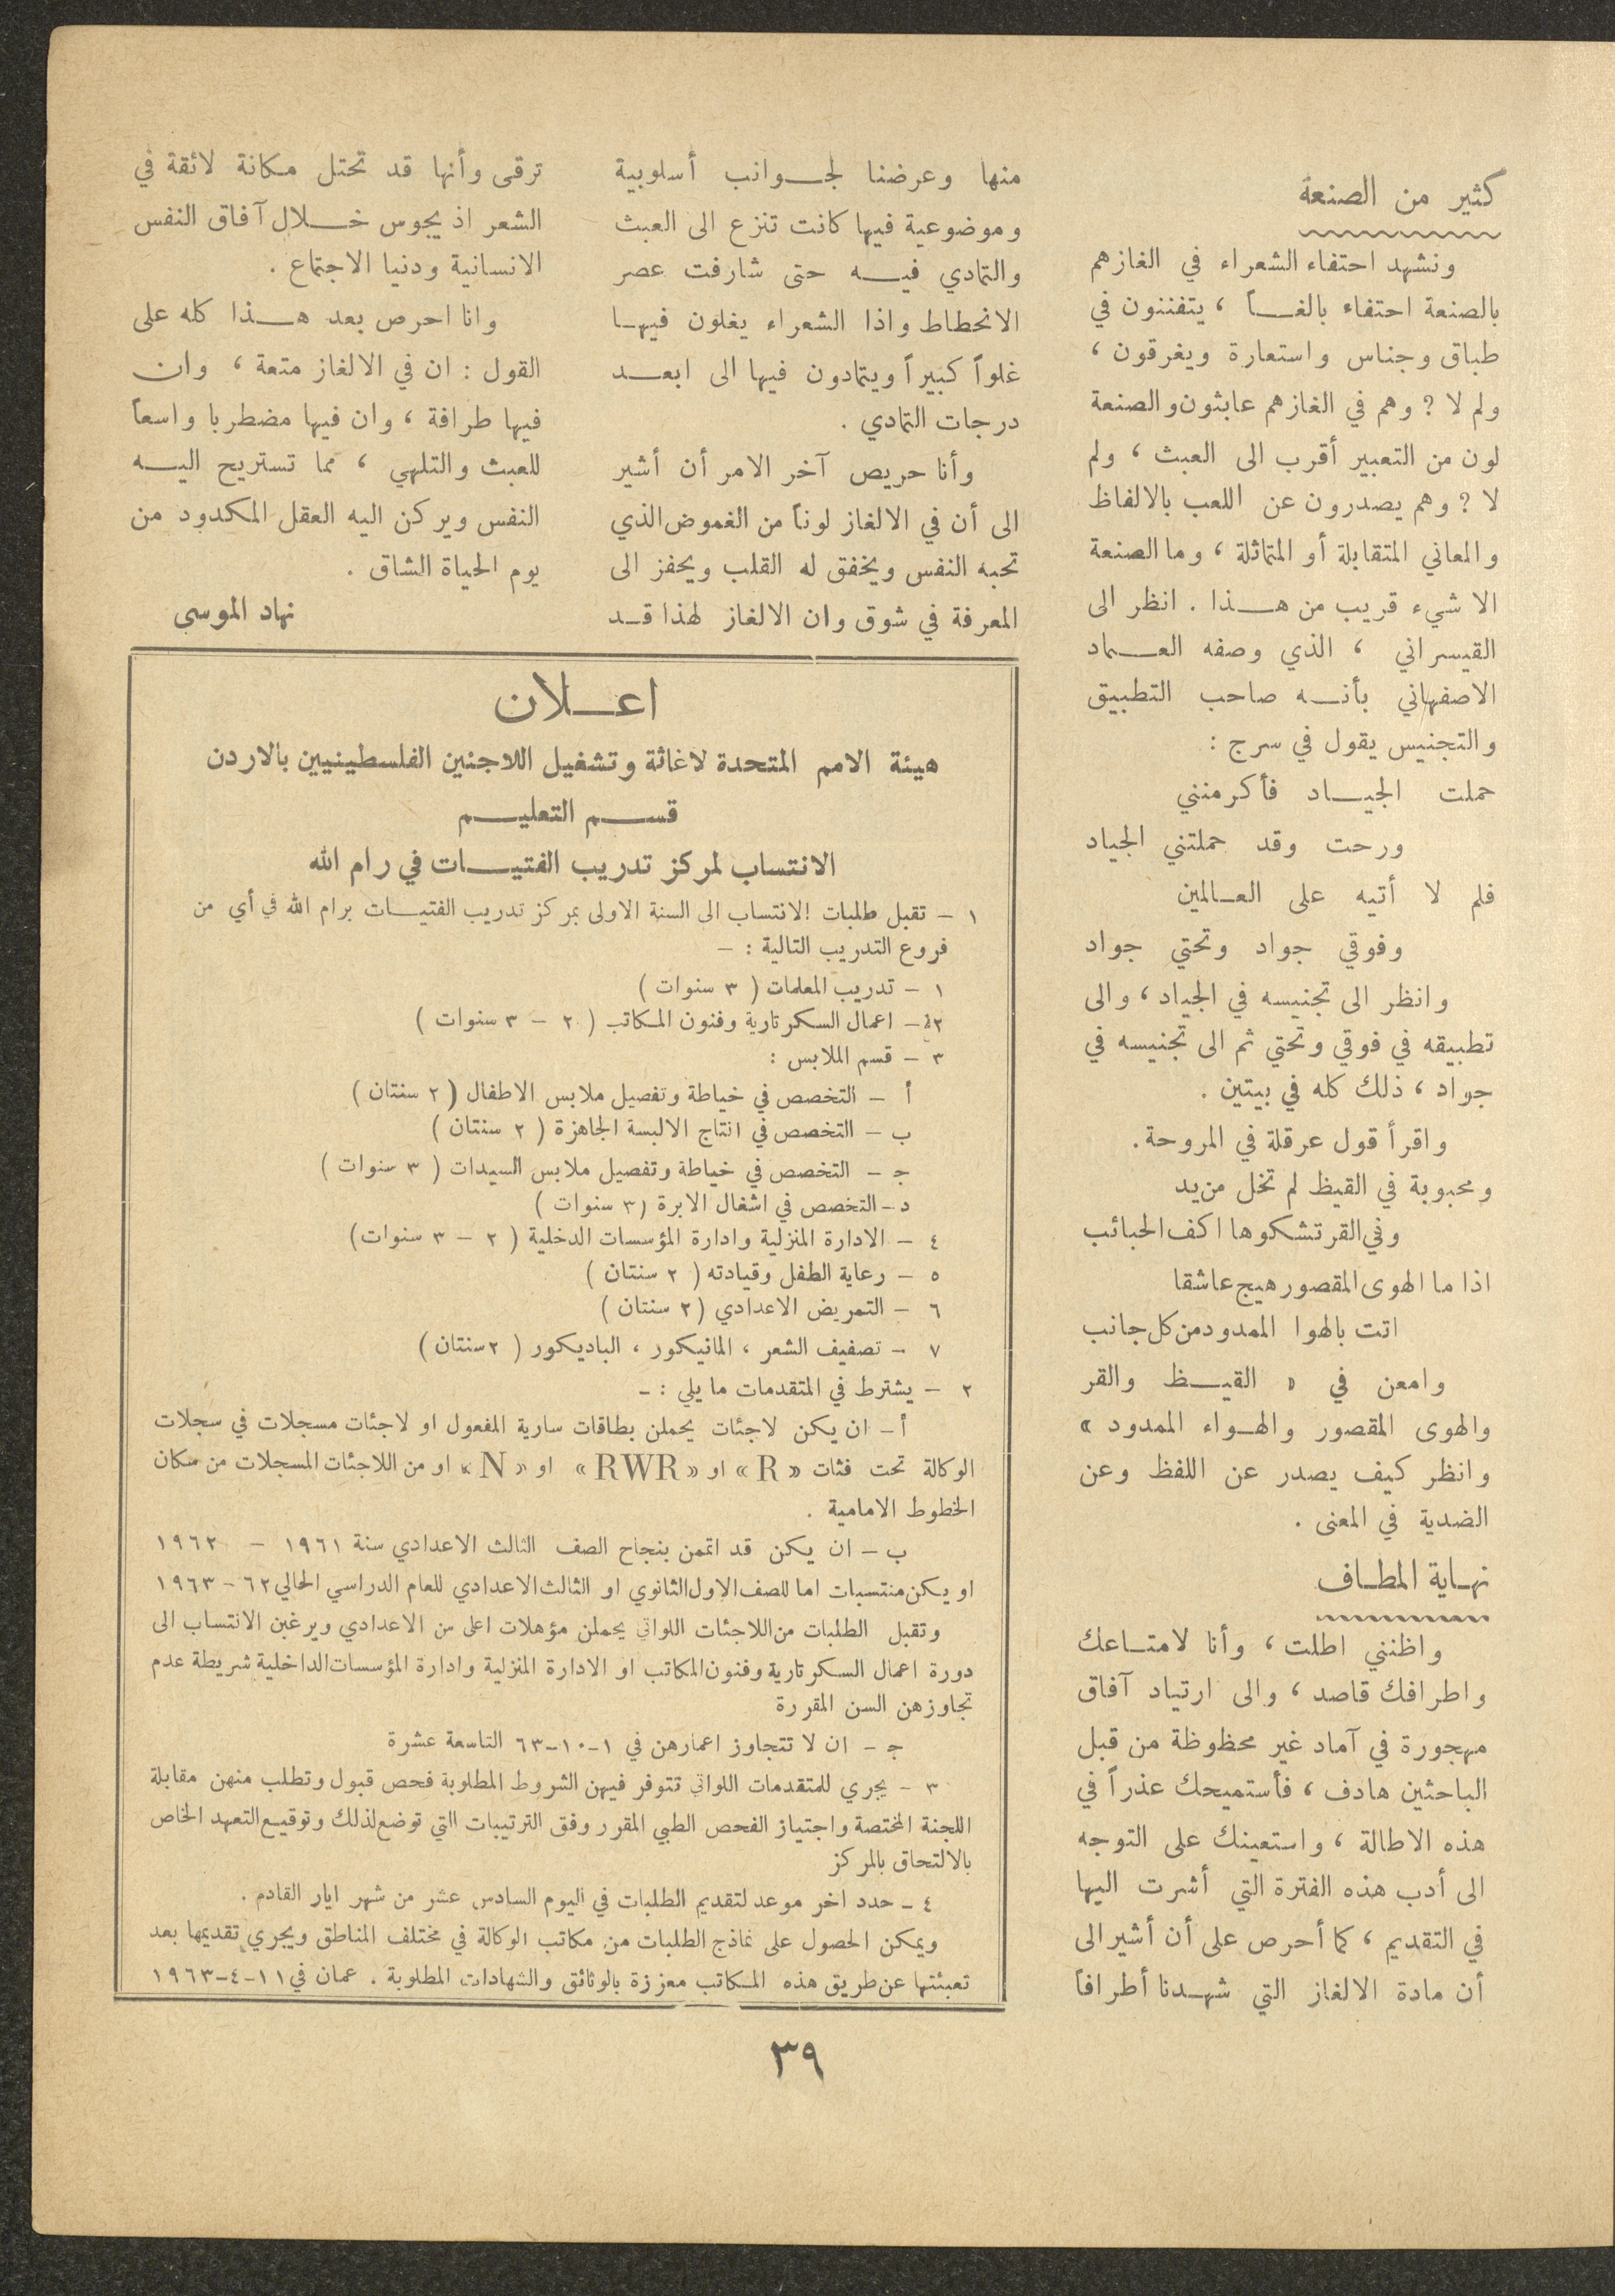 كثير من الصنعة
ونشهد احتفاء الشعراء في الغازهم
بالصنعة احتفاء بالغـاً ، يتفننون في
طباق وجناس واستعارة ويغرقون ،
ولم لا ? وهم في الغازهم عابثون والصنعة
لون من التعبير أقرب الى العبث ، ولم
لا ? وهم يصدرون عن اللعب بالالفاظ
والمعاني المتقابلة أو المتماثلة ، وما الصنعة
الا شيء قريب من هـذا . انظر الى
القيسراني ، الذي وصفه العـماد
الاصفهاني بأنـه صاحب التطبيق
والتجنيس يقول في سرج :
حملت الجيـاد فأكرمنني
ورحت وقد حملتني الجياد
فلم لا أتيه على العـالمين
وفوقي جواد وتحتي جواد
وانظر الى تجنيسه في الجياد ، والى
تطبيقه في فوقي وتحتي ثم الى تجنيسه في
جواد ، ذلك كله في بيتين .
واقرأ قول عرقلة في المروحة .
ومحبوبة في القيظ لم تخل من يد
وفي القر تشكوها اكف الحبائب
اذا ما الهوى المقصور هيج عاشقا
اتت بالهوا الممدود من كل جانب
وامعن في « القيـظ والقر
والهوى المقصور والهـواء الممدود »
وانظر كيف يصدر عن اللفظ وعن
الضدية في المعنى .
نهـاية المطـاف
واظنني اطلت ، وأنا لامتـاعك
واطرافك قاصد ، والى ارتياد آفاق
مهجورة في آماد غير محظوظة من قبل
الباحثين هادف ، فأستميحك عذراً في
هذه الاطالة ، واستعينك على التوجه
الى أدب هذه الفترة التي أشرت اليها
في التقديم ، كما أحرص على أن أشير الى
أن مادة الالغاز التي شهـدنا أطرافاً
منها وعرضنا لجـوانب أسلوبية
وموضوعية فيها كانت تنزع الى العبث
والتمادي فيـه حتى شارفت عصر
الانحطاط واذا الشعراء يغلون فيهـا
غلواً كبيراً ويتمادون فيها الى ابعـد
درجات التمادي .
وأنا حريص آخر الامر أن أشير
الى أن في الالغاز لوناً من الغموض الذي
تحبه النفس ويخفق له القلب ويحفز الى
المعرفة في شوق وان الالغاز لهذا قـد
ترقى وأنها قد تحتل مكانة لائقة في
الشعر اذ يجوس خـلال آفاق النفس
الانسانية ودنيا الاجتماع .
وانا احرص بعد هـذا كله على
القول : ان في الالغاز متعة ، وان
فيها طرافة ، وان فيها مضطربا واسعاً
للعبث والتلهي ، مما تستريح اليـه
النفس ويركن اليه العقل المكدود من
يوم الحياة الشاق .
نهاد الموسى
اعـلان
هيئة الامم المتحدة لاغاثة وتشغيل اللاجئين الفلسطينيين بالاردن
قسـم التعليـم
الانتساب لمركز تدريب الفتيـات في رام الله
١ – تقبل طلبات الانتساب الى السنة الاولى بمركز تدريب الفتيـات برام الله في أي من
فروع التدريب التالية : –
١ – تدريب المعلمات ( ٣ سنوات )
٢ – اعمال السكرتارية وفنون المكاتب ( ٢ – ٣ سنوات )
٣ – قسم الملابس :
أ – التخصص في خياطة وتفصيل ملابس الاطفال ( ٢ سنتان )
ب – التخصص في انتاج الالبسة الجاهزة ( ٢ سنتان )
جـ – التخصص في خياطة وتفصيل ملابس السيدات ( ٣ سنوات )
د – التخصص في اشغال الابرة ( ٣ سنوات )
٤ – الادارة المنزلية وادارة المؤسسات الدخلية ( ٢ – ٣ سنوات )
٥ – رعاية الطفل وقيادته ( ٢ سنتان )
٦ – التمريض الاعدادي ( ٢ سنتان )
٧ – تصفيف الشعر ، المانيكور ، الباديكور ( ٢ سنتان )
٢ – يشترط في المتقدمات ما يلي : –
أ – ان يكن لاجئات يحملن بطاقات سارية المفعول او لاجئات مسجلات في سجلات
الوكالة تحت فئات « R » او « RWR » او « N » او من اللاجئات المسجلات من سكان
الخطوط الامامية .
ب – ان يكن قد اتممن بنجاح الصف الثالث الاعدادي سنة ١٩٦١ – ١٩٦٢
او يكن منتسبات اما للصف الاول الثانوي او الثالث الاعدادي للعام الدراسي الحالي ٦٢ – ١٩٦٣
وتقبل الطلبات من اللاجئات اللواتي يحملن مؤهلات اعلى من الاعدادي ويرغبن الانتساب الى
دورة اعمال السكرتارية وفنون المكاتب او الادارة المنزلية وادارة المؤسسات الداخلية شريطة عدم
تجاوزهن السن المقررة
جـ – ان لا تتجاوز اعمارهن في ١-١٠-٦٣ التاسعة عشرة
٣ – يجري للمتقدمات اللواتي تتوفر فيهن الشروط المطلوبة فحص قبول وتطلب منهن مقابلة
اللجنة المختصة واجتياز الفحص الطبي المقرر وفق الترتيبات التي توضع لذلك وتوقيع التعهد الخاص
بالالتحاق بالمركز
٤ – حدد اخر موعد لتقديم الطلبات في اليوم السادس عشر من شهر ايار القادم .
ويمكن الحصول على نماذج الطلبات من مكاتب الوكالة في مختلف المناطق ويجري تقديمها بعد
تعبئتها عن طريق هذه المكاتب معززة بالوثائق والشهادات المطلوبة . عمان في ١١-٤-١٩٦٣
٣٩